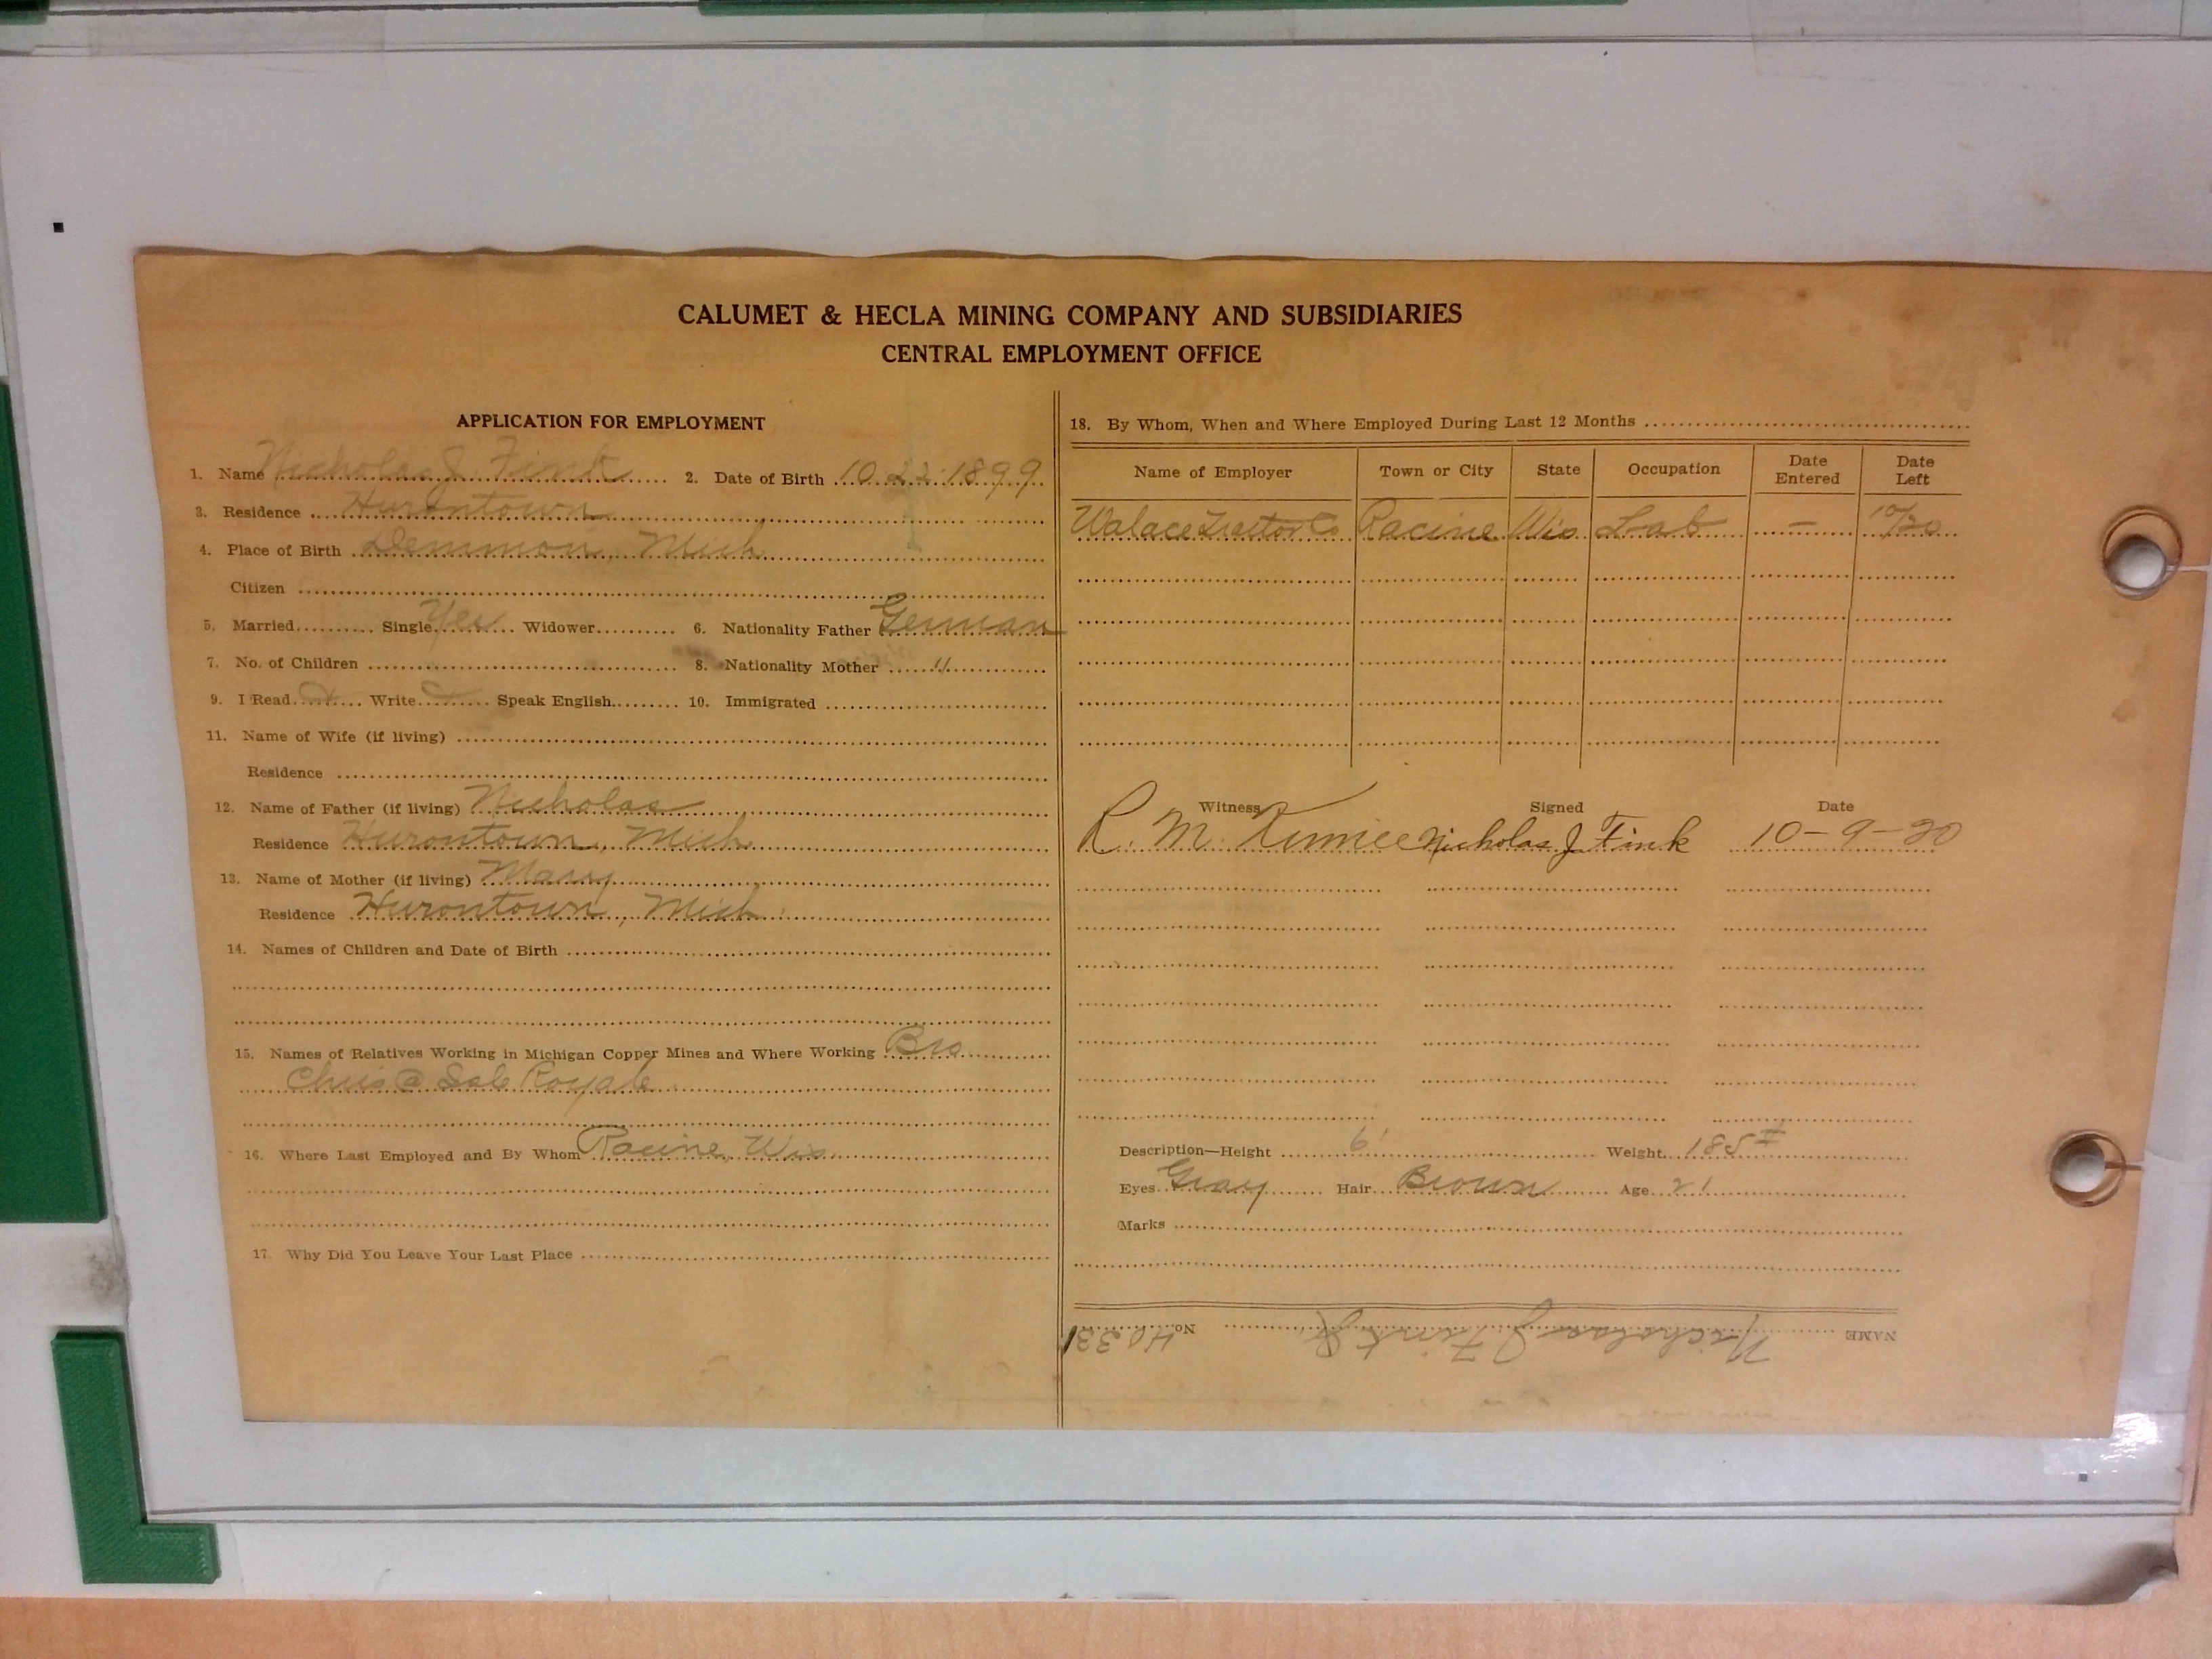 CALUMET & HECLA MINING COMPANY AND SUBSIDIARIES
CENTRAL EMPLOYMENT OFFICE
APPLICATION FOR EMPLOYMENT
1. Name Nicholas J. Fink 2. Date of Birth 10 22 1899
3. Residence Hurontown
4. Place of Birth Demmon, Mich
Citizen
5. Married Single Yes Widower 6. Nationality Father German
7. No. of Children 8. Nationality Mother "
9. I Read Write Speak English 10. Immigrated
11. Name of Wife (if living)
Residence
12. Name of Father (if living) Nicholas
Residence Hurontown, Mich
13. Name of Mother (if living) Mary
Residence Hurontown, Mich
14. Names of Children and Date of Birth
15. Names of Relatives Working in Michigan Copper Mines and Where Working Bro
Chris @ Isle Royale
16. Where Last Employed and By Whom Racine, Wis
17. Why Did You Leave Your Last Place
18. By Whom, When and Where Employed During Last 12 Months
Name of Employer Town or City State Occupation Date Entered Date Left
Walace Tractor Co Racine Wis Lab — 10/20
Witness Signed Date
R. M. Nicholas J Fink 10-9-20
Description—Height 6' Weight 185#
Eyes Gray Hair Brown Age 21
Marks
NAME Nicholas J Fink Jr. No. 40331